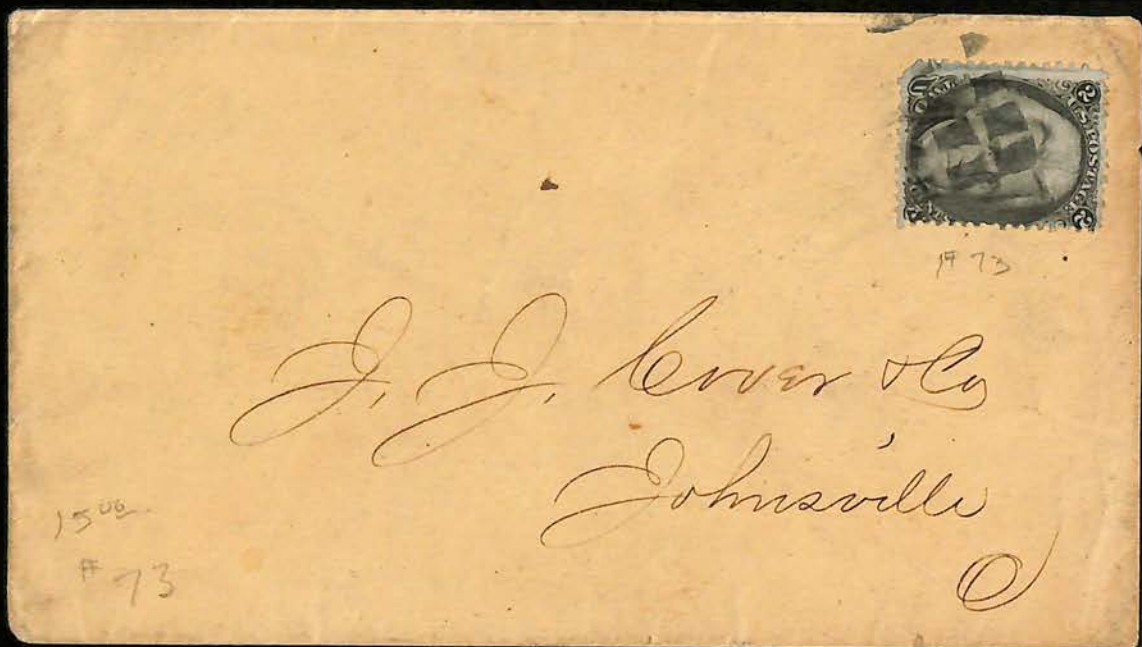 U.S. POSTAGE
2 2
# 73
J. J. Cover & Co
Johnsville
O
15 00
# 73